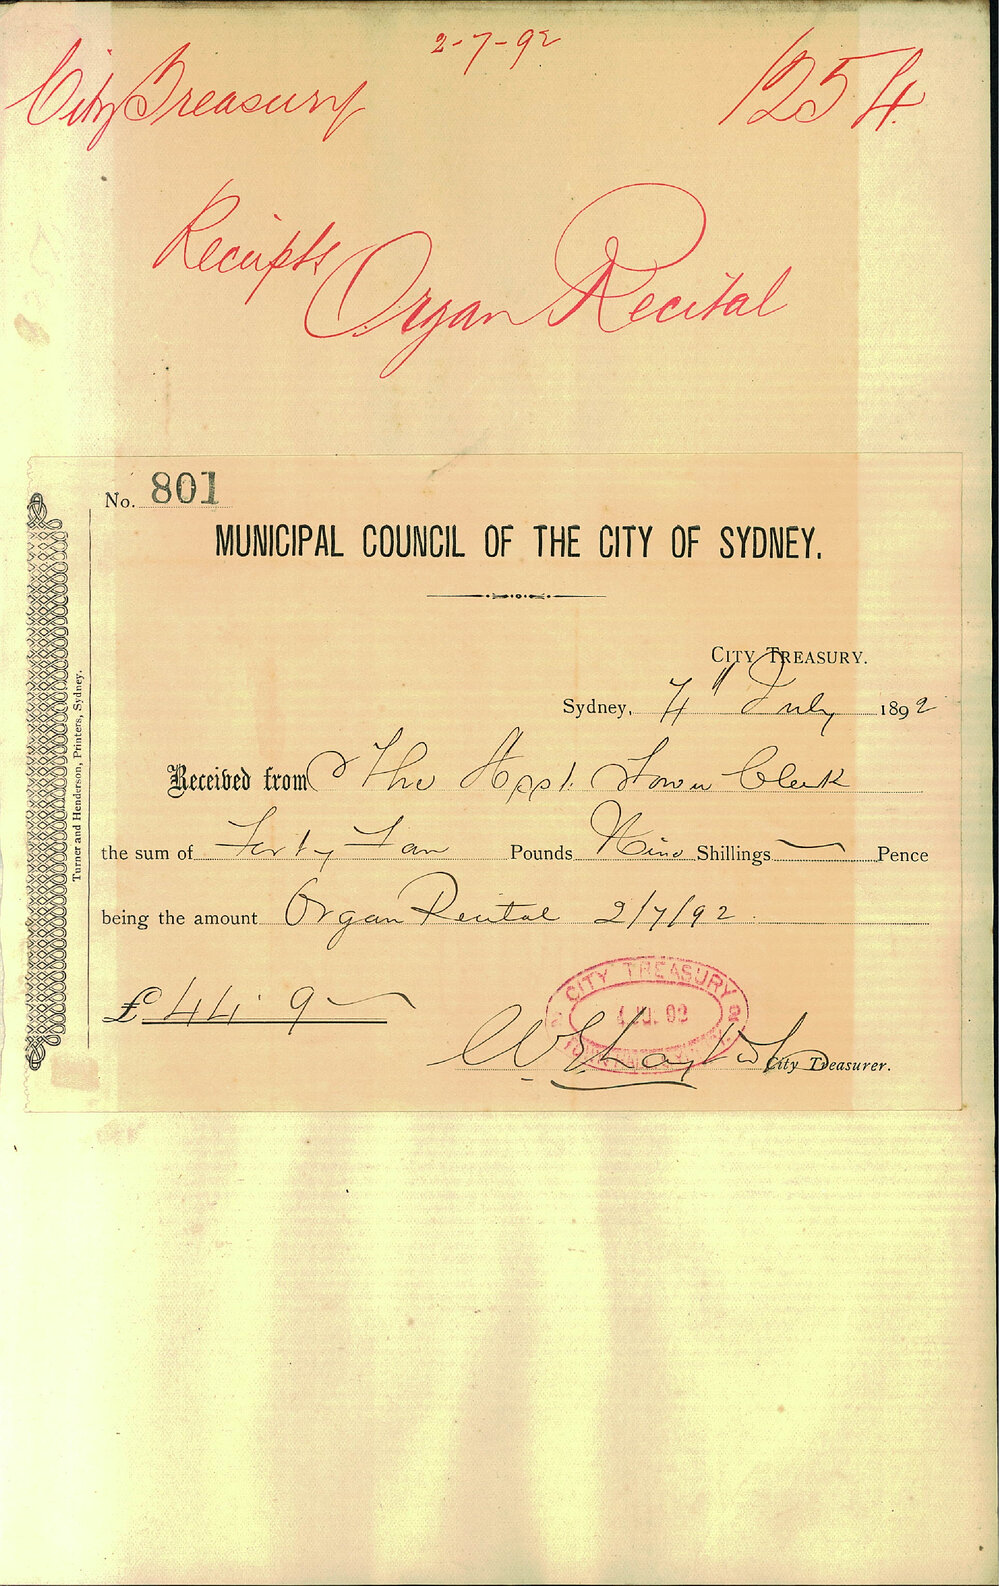 2-7-92
City Treasury
1254
Receipts Organ Recital
No. 801
MUNICIPAL COUNCIL OF THE CITY OF SYDNEY.
CITY TREASURY.
Sydney, 4" July 1892
Received from The Asst. Town Clerk
the sum of Forty Four Pounds Nine Shillings — Pence
being the amount Organ Recital 2/7/92
£44. 9 —
CITY TREASURY
City Treasurer.
Turner and Henderson, Printers, Sydney.